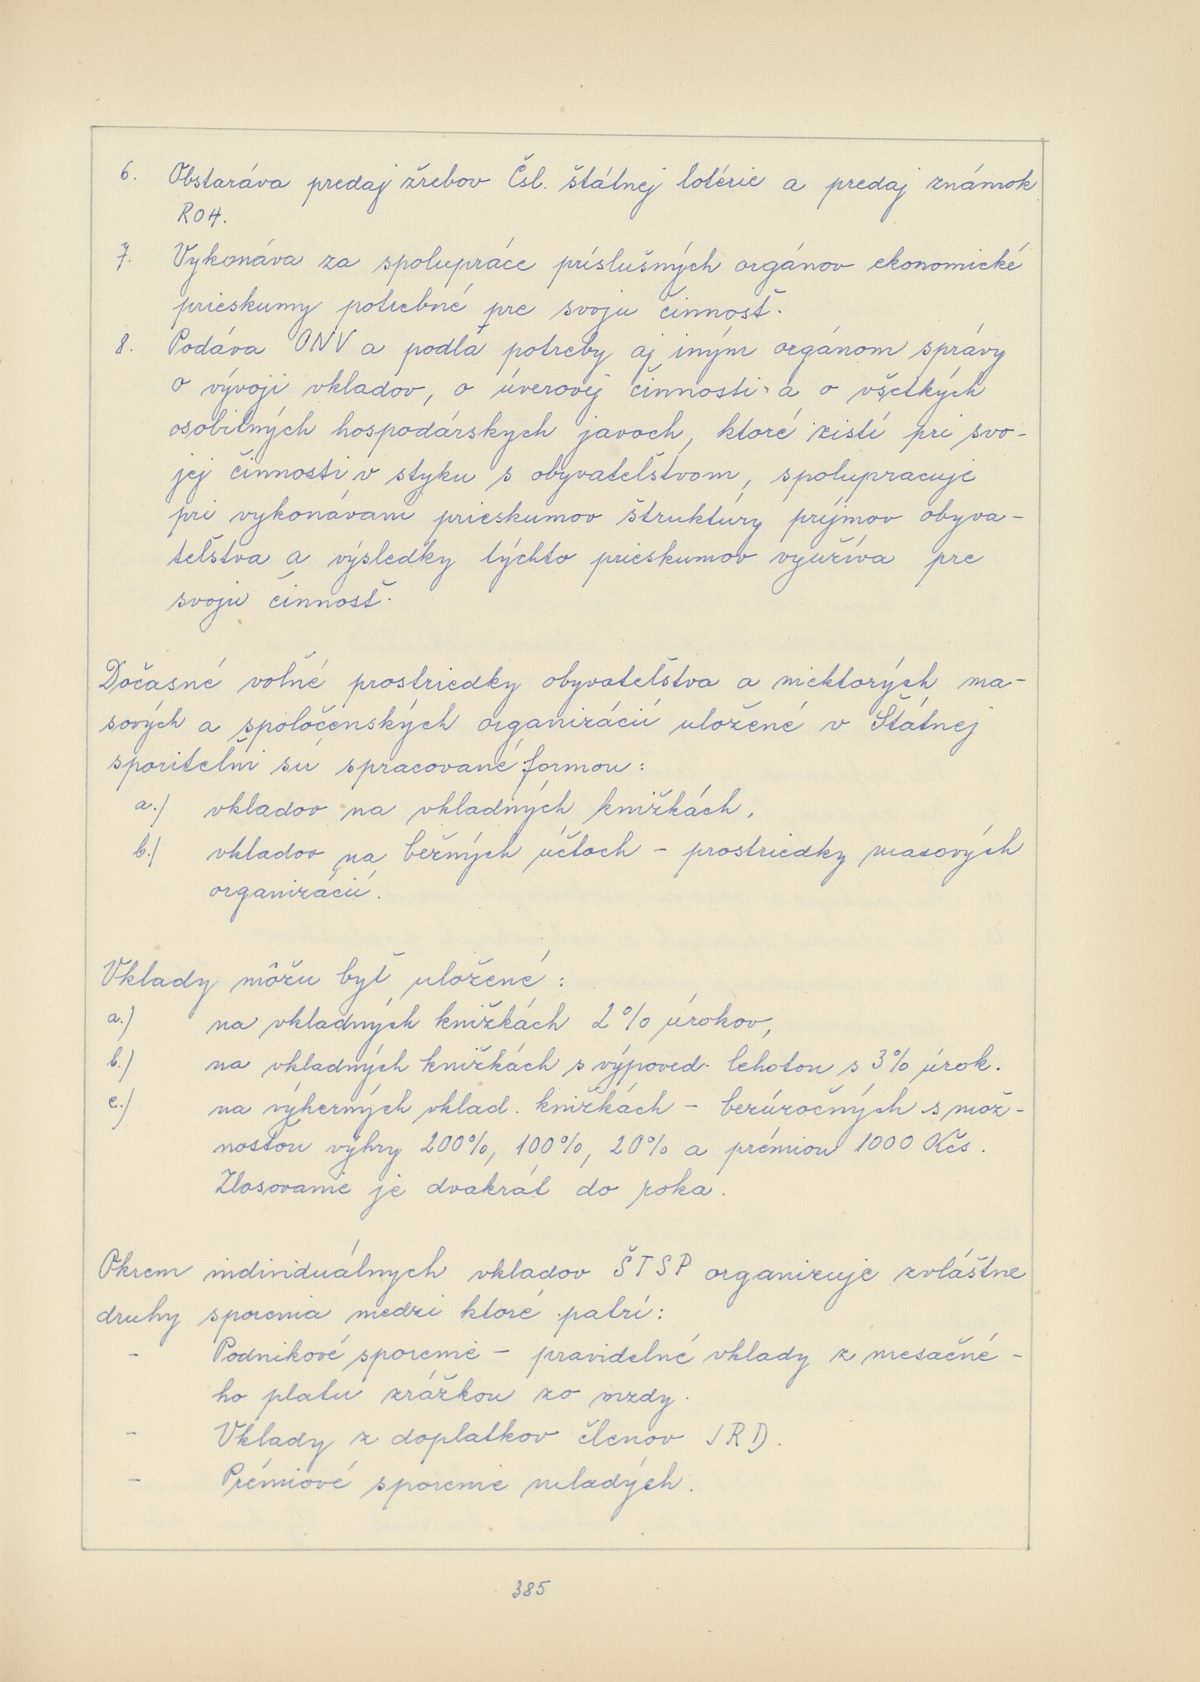 6. Obstaráva predaj žrebov Čsl. štátnej lotérie a predaj známok
ROH.
7. Vykonáva za spolupráce príslušných orgánov ekonomické
prieskumy potrebné pre svoju činnosť.
8. Podáva ONV a podľa potreby aj iným orgánom správy
o vývoji vkladov, o úverovej činnosti a o všetkých
osobitných hospodárskych javoch, ktoré zistí pri svo-
jej činnosti v styku s obyvateľstvom, spolupracuje
pri vykonávaní prieskumov štruktúry príjmov obyva-
teľstva a výsledky týchto prieskumov využíva pre
svoju činnosť.
Dočasné voľné prostriedky obyvateľstva a niektorých ma-
sových a spoločenských organizácií uložené v Štátnej
sporiteľni sú spracované formou:
a.) vkladov na vkladných knižkách,
b.) vkladov na bežných účtoch - prostriedky masových
organizácií.
Vklady môžu byť uložené:
a.) na vkladných knižkách 2% úrokov,
b.) na vkladných knižkách s výpoved. lehotou s 3% úrok.
c.) na výherných vklad. knižkách - bezúročných s mož-
nosťou výhry 200%, 100%, 20% a prémiou 1000 Kčs.
Zlosovanie je dvakrát do roka.
Okrem individuálnych vkladov ŠTSP organizuje zvláštne
druhy sporenia medzi ktoré patrí:
- Podnikové sporenie - pravidelné vklady z mesačné-
ho platu zrážkou zo mzdy.
- Vklady z doplatkov členov JRD.
- Prémiové sporenie mladých.
385